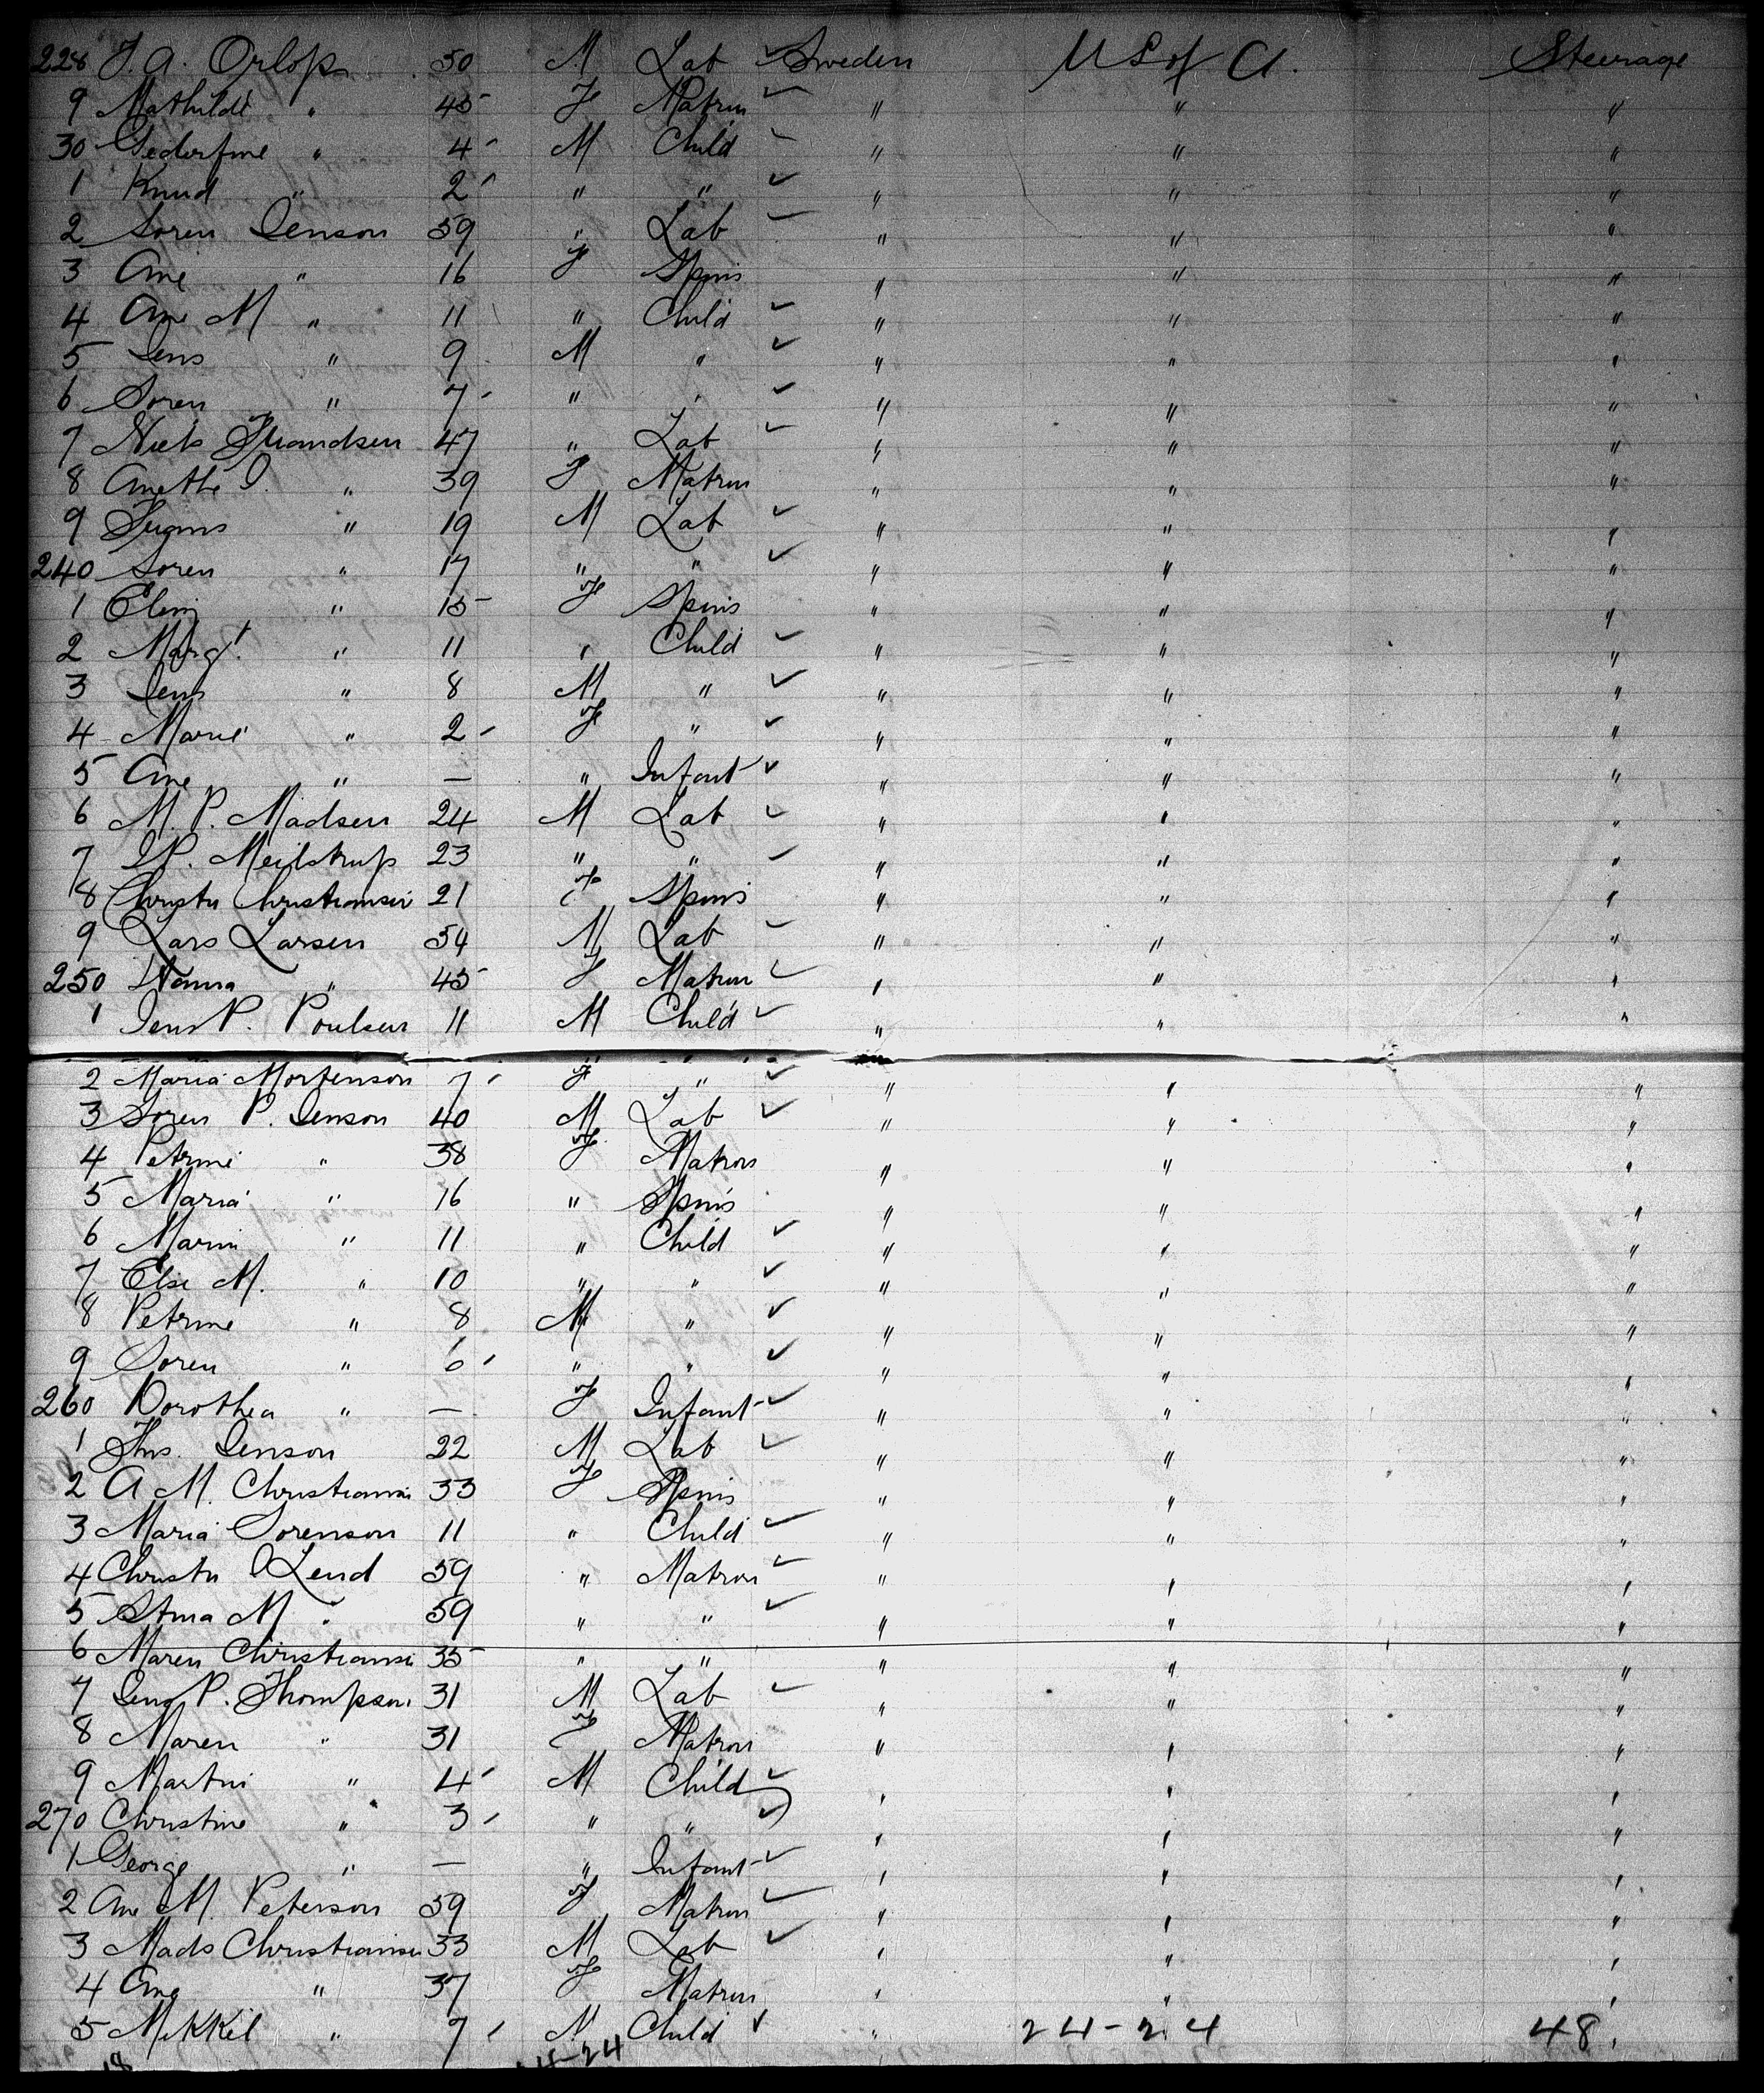 228 J. A. Orlop 50 M Lab Sweden US of A. Steerage
9 Mathilde " 45 F Matrn " " "
30 " 4 M Child " " "
1 Knud " 2 " " " " "
2 Soren Jenson 59 " Lab " " "
3 Ane " 16 F Spins " " "
4 Ane M " 11 " Child " " "
5 Jens " 9 M " " " "
6 Soren " 7 " " " " "
7 Niels 47 " Lab " " "
8 Anethe J. " 39 F Matrn " " "
9 " 19 M Lab " " "
240 Soren " 17 " " " " "
1 " 15 F Spins " " "
2 Margt. " 11 " Child " " "
3 Jens " 8 M " " " "
4 Marie " 2 F " " " "
5 Ane " — " Infant " " "
6 M. P. Madsen 24 M Lab " " "
7 J P. Meilstrup 23 " " " " "
8 Christn Christiansen 21 F Spins " " "
9 Lars Larsen 54 M Lab " " "
250 Hanna " 45 F Matrn " " "
1 Jens P. Poulsen 11 M Child " " "
2 Maria Mortenson 7 F " " " "
3 Soren P. Jenson 40 M Lab " " "
4 Petrine " 38 F Matron " " "
5 Maria " 16 " Spins " " "
6 Marin " 11 " Child " " "
7 Else M. " 10 " " " " "
8 Petrine " 8 M " " " "
9 Soren " 6 " " " " "
260 Dorothea " — F Infant " " "
1 Jenson 22 M Lab " " "
2 A M. Christiansn 33 F Spins " " "
3 Maria Sorenson 11 " Child " " "
4 Christn Lend 59 " Matron " " "
5 Stina M " 59 " " " " "
6 Maren Christianse 35 " " " " "
7 Jens P. Thompson 31 M Lab " " "
8 Maren " 31 F Matron " " "
9 Martin " 4 M Child " " "
270 Christine " 3 " " " " "
1 George " — " Infant " " "
2 Ane M. Peterson 59 F Matrn " " "
3 Mads Christianse 33 M Lab " " "
4 Ane " 37 F Matrn " " "
5 Mikkel " 7 M Child " 24-24 48 "